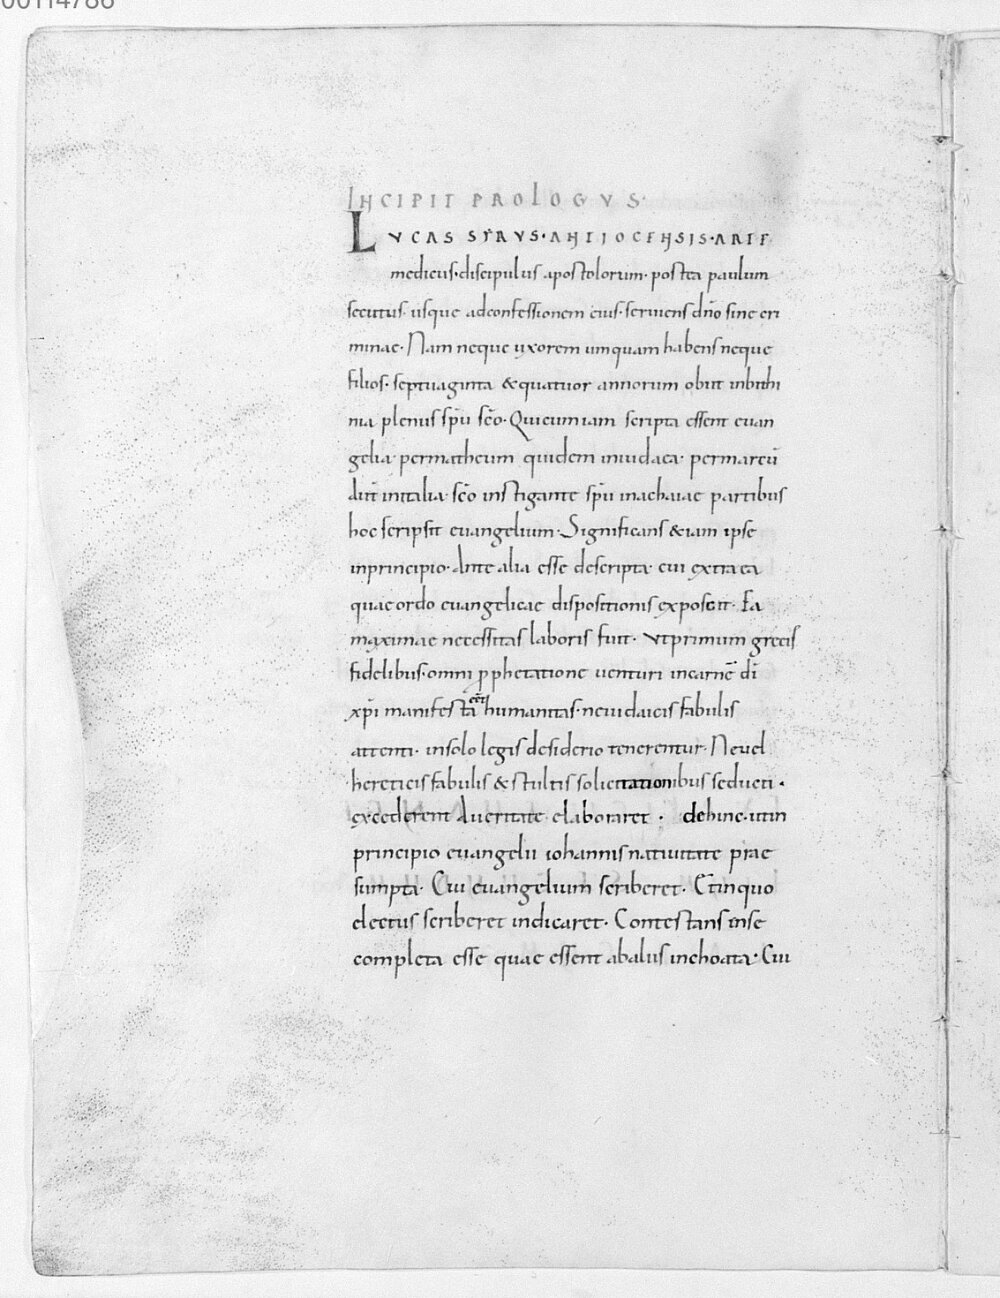 00114786
INCIPIT PROLOGVS
LVCAS SYRVS·ANTIOCENSIS·ARTE
medicus·discipulus apostolorum· postea paulum
secutus· usque adconfessionem eius· seruiens dn̄o sine cri
minae· Nam neque uxorem umquam habens neque
filios· septuaginta &quattuor annorum obiit inbithi
nia plenus sp̄u sc̄o· Quicumiam scripta essent euan
gelia· permatheum quidem iniudaea· permarcū
aūt initalia· sc̄o instigante sp̄u inachaiae partibus
hoc scripsit euangelium· Significans &iam ipse
inprincipio· Ante alia esse descripta· cui extra ea
quae ordo euangelicae dispositionis exposcit· Ea
maximae necessitas laboris fuit· vtprimum grecis
fidelibus· omni prophetatione uenturi incarnē dī
xp̄i manifesta eēt humanitas· neiudaicis fabulis
attenti· insolo legis desiderio tenerentur· Neuel
hereticis fabulis & stultis solicitationibus seducti·
excederent Aueritate elaboraret · dehinc· utin
principio euangelii iohannis natiuitate prae
sumpta· Cui euangelium scriberet· Etinquo
electus scriberet indicaret· Contestans inse
completa esse quae essent abaliis inchoata· Cui